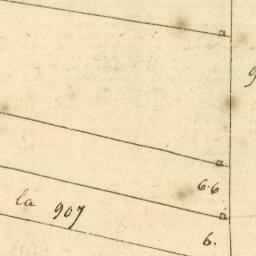 a
9
a
6.6
la 907
a
6.